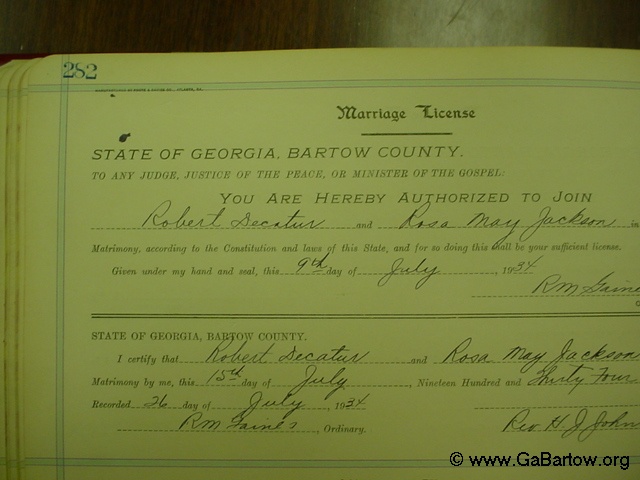 282
Marriage License
STATE OF GEORGIA, BARTOW COUNTY.
TO ANY JUDGE, JUSTICE OF THE PEACE, OR MINISTER OF THE GOSPEL:
YOU ARE HEREBY AUTHORIZED TO JOIN
Robert Decatur and Rosa May Jackson in
Matrimony, according to the Constitution and laws of this State, and for so doing this shall be your sufficient license.
Given under my hand and seal, this 9th day of July, 1934
RM Gaines
STATE OF GEORGIA, BARTOW COUNTY.
I certify that Robert Decatur and Rosa May Jackson
Matrimony by me, this 15th day of July, Nineteen Hundred and Thirty Four
Recorded 26 day of July, 1934
RM Gaines, Ordinary. Rev. H. J. John
© www.GaBartow.org